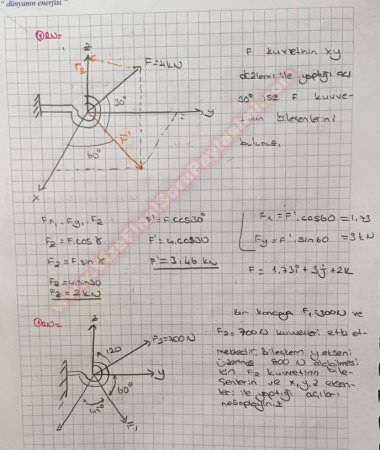 " dünyanın enerjisi "
ÖRN=
z
F=4kN
Fz
30°
y
F'
60°
x
F kuvvetinin xy
düzlemi ile yaptığı açı
30° ise F kuvve-
tinin bileşenlerini
bulunuz.
Fx, Fy, Fz
Fz = F.cosγ
Fz = F.sin
Fz = 4.sin30
Fz = 2kN
F' = F.cos30°
F' = 4.cos30
F' = 3.46 kN
Fx = F'.cos60 = 1,73
Fy = F'.sin60 = 3kN
F = 1.73i + 3j + 2k
ÖRN=
z
120
F2=700N
y
60°
45°
F1
Bir kancaya F1=300N ve
F2=700N kuvvetleri etki et-
mektedir. bileşkenin y ekseni
üzerinde 800 N olabilmesi
için F2 kuvvetinin bile-
şenlerini ve x, y, z eksen-
leri ile yaptığı açıları
hesaplayınız